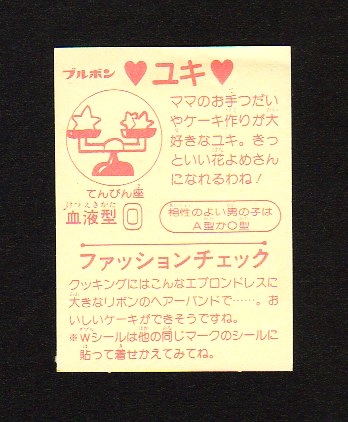 ブルボン ♥ユキ♥
ママのお手つだい
やケーキ作りが大
好きなユキ。きっ
といい花よめさん
になれるわね!
てんびん座
血液型 O
相性のよい男の子は
A型かO型
ファッションチェック
クッキングにはこんなエプロンドレスに
大きなリボンのヘアーバンドで……。お
いしいケーキができそうですね。
※Wシールは他の同じマークのシールに
貼って着せかえてみてね。